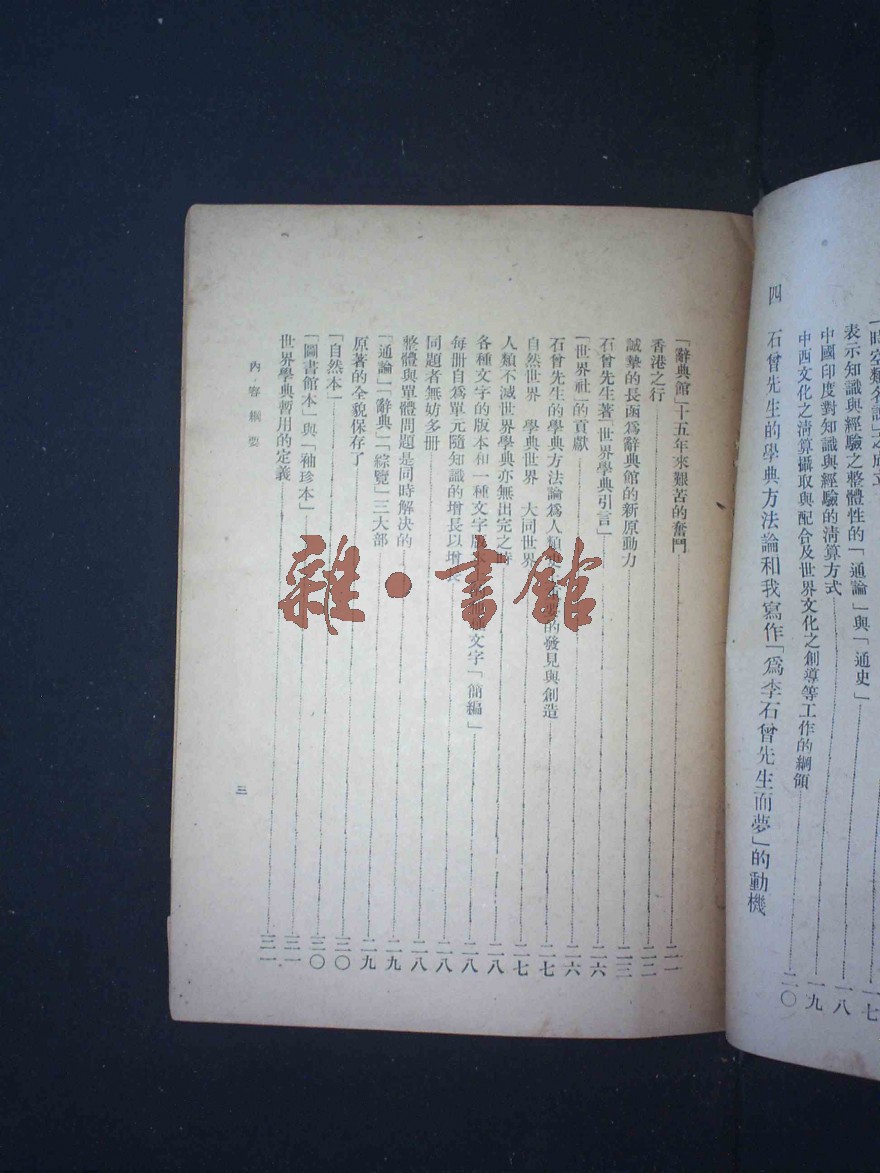 表示知識與經驗之整體性的「通論」與「通史」 一八
中國印度對知識與經驗的清算方式 一九
中西文化之清算攝取與配合及世界文化之創導等工作的綱領 二〇
四 石曾先生的學典方法論和我寫作「爲李石曾先生而夢」的動機
「辭典館」十五年來艱苦的奮鬥 二一
香港之行 二二
誠摯的長函爲辭典館的新原動力 二三
石曾先生著「世界學典引言」 二六
「世界社」的貢獻 二六
石曾先生的學典方法論爲人類的發見與創造 二七
自然世界 學典世界 大同世界 二七
人類不滅世界學典亦無出完之時 二八
各種文字的版本和一種文字版文字「簡編」 二八
每冊自爲單元隨知識的增長以增長 二八
同題者無妨多冊 二八
整體與單體問題是同時解決的 二九
「通論」「辭典」「綜覽」三大部 二九
原著的全貌保存了 三〇
「自然本」 三〇
「圖書館本」與「袖珍本」 三一
世界學典暫用的定義 三一
內容綱要
三
雜·書館